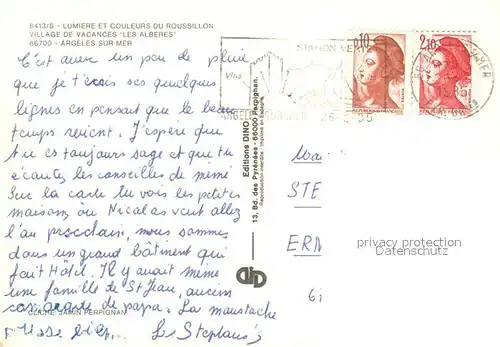 8413/S - LUMIERE ET COULEURS DU ROUSSILLON
VILLAGE DE VACANCES "LES ALBERES"
66700 - ARGELES SUR MER
C'est avec un peu de pluie
que je t'écris ces quelques
lignes en pensant que le beau
temps revient. J'espère que
tu es toujours sage et que tu
écoutes les conseilles de mémé
Sur la carte tu vois les petites
maisons où Nicolas veut aller
l'an prochain, nous sommes
dans un grand bâtiment qui
fait Hôtel. Il y avait même
une famille de St Jean, ancien
de papa. La moustache
CLICHE JAMIN PERPIGNAN
Editions DINO
13, Bd. des Pyrénées - 66000 Perpignan.
Reproduction interdite. Imprimé en Espagne.
STATION VE
0,10
2,10
STE
ERN
privacy protection
Datenschutz